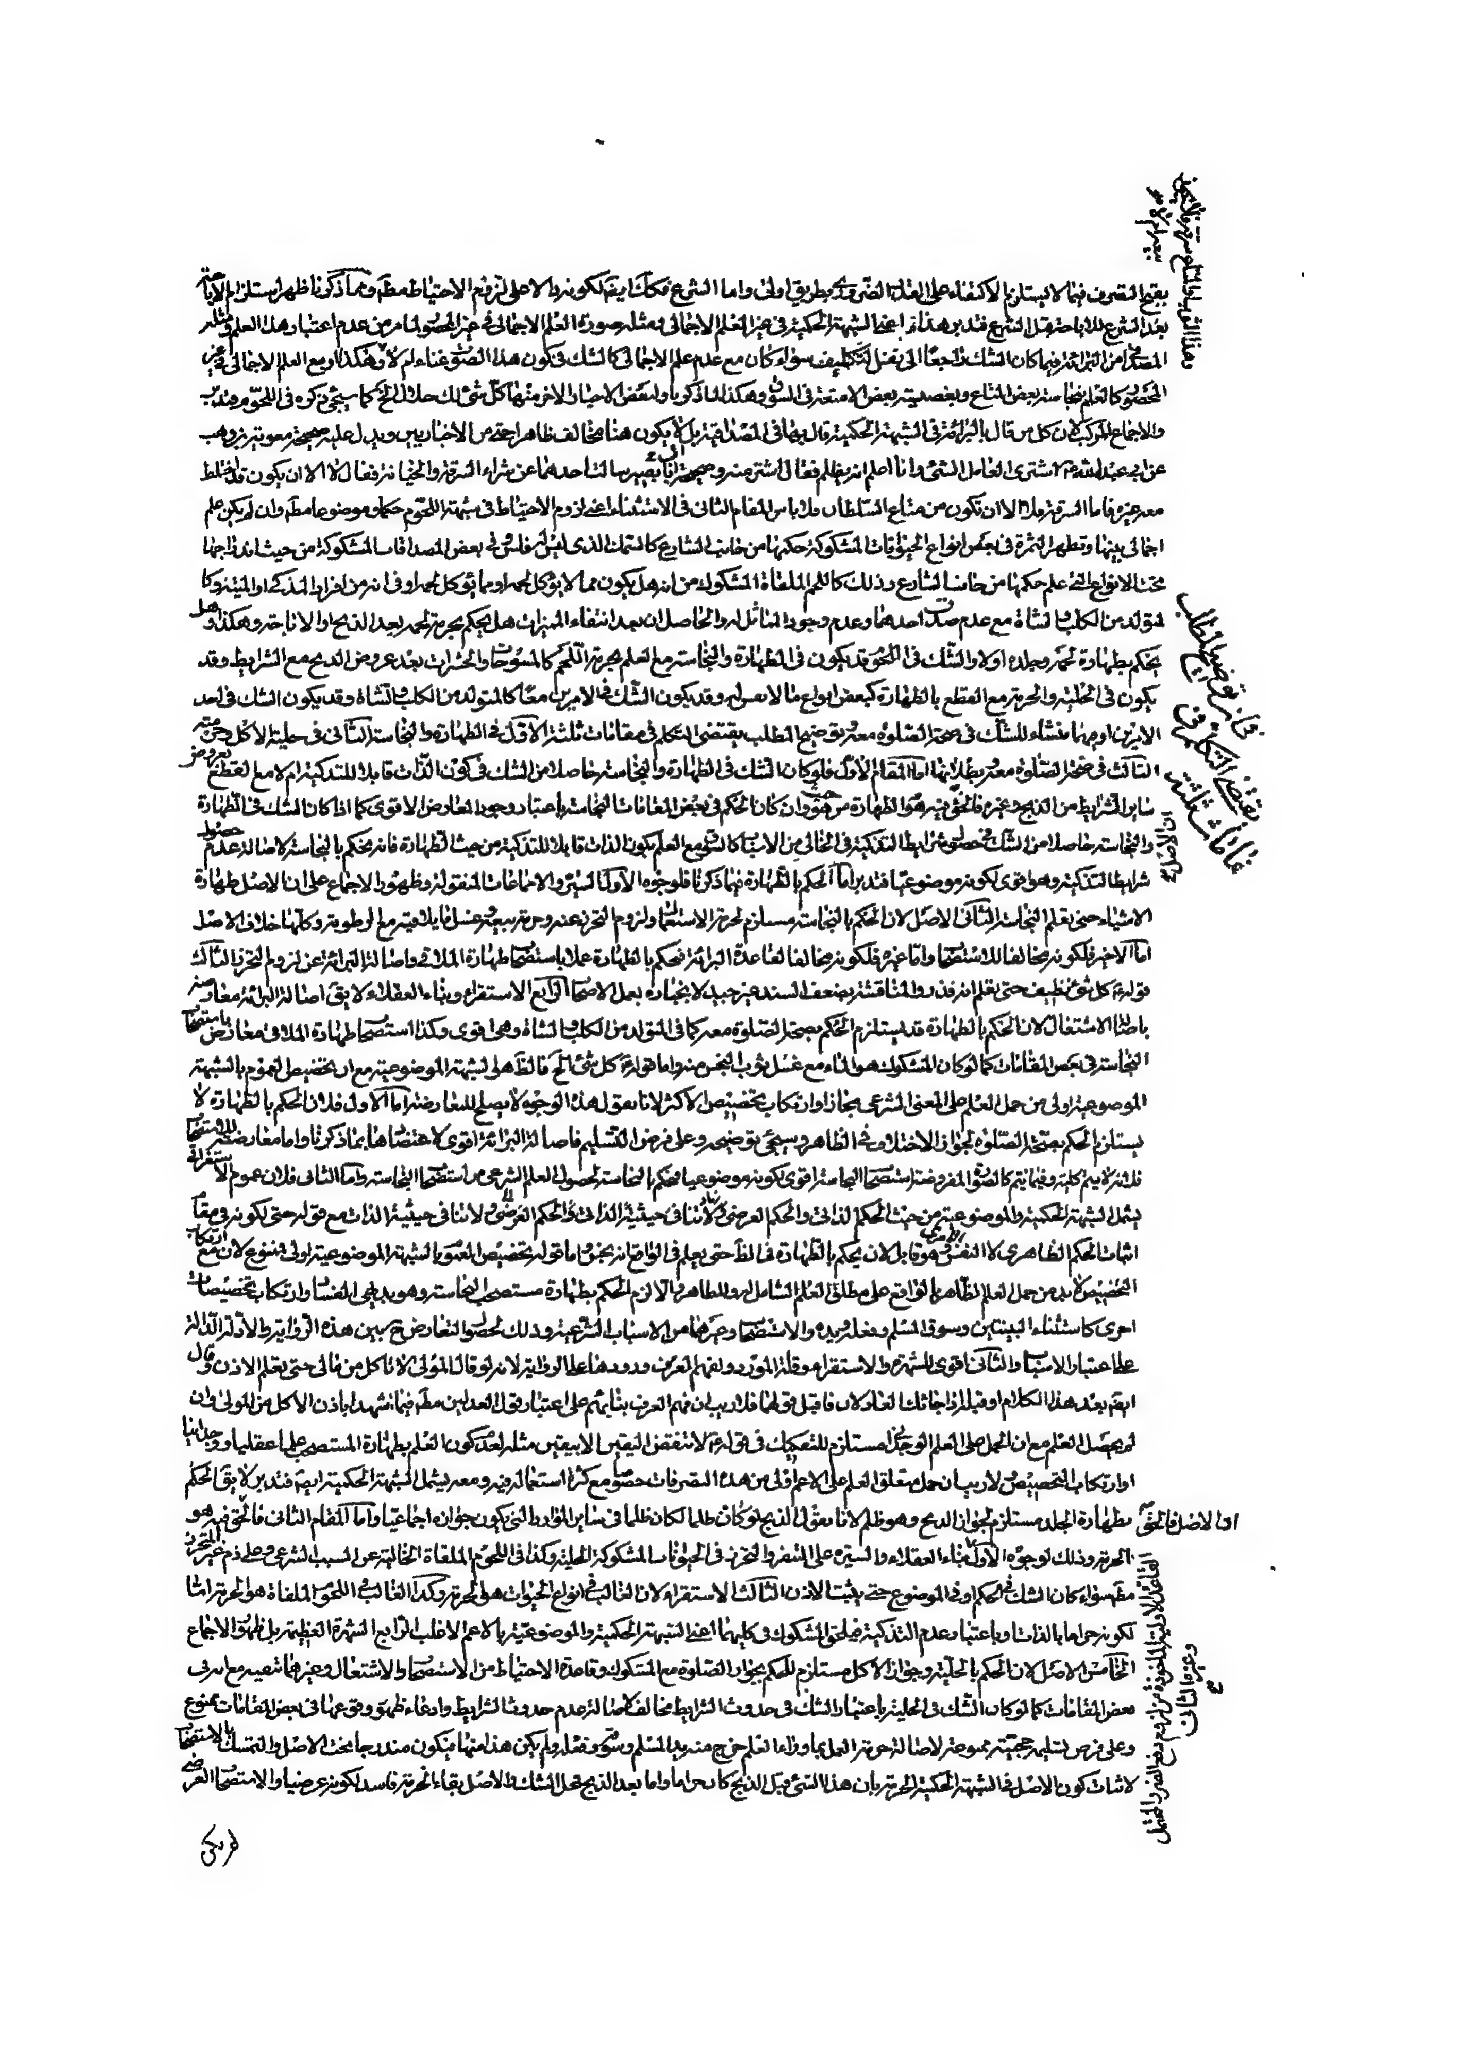 بقبح التصرف فيما لا يستلزم الاكتفاء على القدر الضروري بطريق اولى واما الشرع فكك ايضا لكونه دالا على لزوم الاحتياط مطه ومما ذكرنا ظهر استلزام الاباحة
بعد الشرع للاباحة قبل الشرع فتدبر هذا في الشبهة الحكمية في غير العلم الاجمالي ومثله صورة العلم الاجمالي في غير المحصور لما مر من عدم اعتبار هذا العلم ومثله
فيما كان الشك راجعا الى نفس التكليف سواء كان مع عدم علم اجمالي كالشك في كون هذا الصوت غناء ام لا وهكذا او مع العلم الاجمالي في غير
المحصور كالعلم بنجاسة بعض المتاع وبغصبية بعض الامتعة في السوق وهكذا لما ذكرنا ولبعض الاخبار الاخر منها كل شئ لك حلال الخ كما سيجئ ذكره في اللحوم
والاجماع المركب لان كل من قال بالبرائة في الشبهة الحكمية قال بها في المصداقية بل لا يكون هنا مخالف ظاهرا حتى من الاخباريين ويدل عليه صحيحة معوية بن وهب
عن ابي عبد الله اشترى العامل الشئ وانا اعلم انه يظلم فقال اشتر منه وصحيحة ابي بصير سالت احدهما عن شراء السرقة والخيانة فقال لا الا ان يكون قد اختلط
معه غيره فاما السرقة بعينها فلا الا ان تكون من متاع السلطان فلا باس المقام الثاني في الاستثناء اعني لزوم الاحتياط في شبهة اللحوم حكما وموضوعا مطه وان لم يكن علم
اجمالي بينها وتظهر الثمرة في بعض انواع الحيوانات المشكوكة حكمها من جانب الشارع كالسمك الذي ليس له فلوس وفي بعض المصداقات المشكوكة من حيث اندراجها
تحت الانواع التي علم حكمها من جانب الشارع وذلك كاللحم الملقاة المشكوك من انه هل يكون مما لا يؤكل لحمه او مما يؤكل لحمه او في انه من افراد المذكى او الميتة وكا
لمتولد من الكلب والشاة مع عدم صدق احدهما وعدم وجود المماثل له والحاصل ان بعد انتفاء الميزات هل يحكم بحرمة لحمه بعد الذبح او الاباحة وهكذا وهل
يحكم بطهارة لحمه وجلده اولا والشك في اللحوم قد يكون في الطهارة والنجاسة مع العلم بحرمة اللحم كالمسوخات والحشرات بعد عروض الذبح مع الشرايط وقد
يكون في الحلية والحرمة مع القطع بالطهارة كبعض انواع ما لا نفس له وقد يكون الشك في الامرين معا كالمتولد من الكلب والشاة وقد يكون الشك في احد
الامرين او منشاء للشك في صحة الصلوة معه توضيح المطلب يقتضي التكلم في مقامات ثلثة الاول في الطهارة والنجاسة الثاني في حلية الاكل وحرمته
الثالث في صحة الصلوة معه وبطلانها اما المقام الاول فلو كان الشك في الطهارة والنجاسة حاصلا من الشك في كون الذات قابلا للتذكية ام لا مع القطع بعروض
ساير الشرايط من الذبح وغيره فالحق فيه هو الطهارة من حيث هو وان كان الحكم في بعض المقامات النجاسة باعتبار وجود المعارض الاقوى كما اذا كان الشك في الطهارة
والنجاسة حاصلا من الشك في حصول شرايط التذكية في الخالي من الاسباب كالسوق مع العلم بكون الذات قابلا للتذكية من حيث الطهارة فانه يحكم بالنجاسة لاصالة عدم حصول
شرايط التذكية وهو اقوى لكونه موضوعيا فتدبر اما الحكم بالطهارة فيما ذكرنا فلوجوه الاول السيرة والاجماعات المنقولة وظهور الاجماع على ان الاصل طهارة
الاشياء حتى يعلم النجاسة الثاني الاصل لان الحكم بالنجاسة مستلزم لحرمة الاستعمال ولزوم التحرز عنه وحرمة بيعه وغسل ما يلاقيه مع الرطوبة وكلها خلاف الاصل
اما الاخير فلكونه مخالفا للاستصحاب واما غيره فلكونه مخالفا لقاعدة البرائة فيحكم بالطهارة عملا باستصحاب طهارة الملاقي واصالة البرائة عن لزوم التحرز الثالث
قوله كل شئ نظيف حتى يعلم انه قذر والمناقشة بضعف السند غير جيد لانجباره بعمل الاصحاب الرابع الاستقراء وبناء العقلاء لا يقال اصالة البرائة معارضة
باصالة الاشتغال لان الحكم بالطهارة قد يستلزم الحكم بصحة الصلوة معه كما في المتولد من الكلب والشاة وهي اقوى وكذا استصحاب طهارة الملاقي معارض باستصحاب
النجاسة في بعض المقامات كما لو كان المشكوك هو الماء مع غسل ثوب النجس منه واما قوله كل شئ الخ فالظ هو الشبهة الموضوعية مع ان تخصيص العموم بالشبهة
الموضوعية اولى من حمل العلم على المعنى الشرعي مجازا وارتكاب تخصيص الاكثر لانا نقول هذه الوجوه لا يصلح للمعارضة اما الاول فلان الحكم بالطهارة لا
يستلزم الحكم بصحة الصلوة لجواز الاختلاف في الظاهر وسيجئ توضيحه وعلى فرض التسليم فاصالة البرائة اقوى لاعتضادها بما ذكرنا واما معارضته للاستصحاب
فلانه لا يتم كلية وفيما يتم كالصورة المفروضة استصحاب النجاسة اقوى لكونه موضوعيا فيحكم بالنجاسة لحصول العلم الشرعي من استصحاب النجاسة واما الثاني فلان عموم الاستغراقي
يشمل الشبهة الحكمية والموضوعية من حيث الحكم الذاتي والحكم العرضي لا تنافي حيثية الذات مع قوله حتى لكونه في مقام
اثبات الحكم الظاهري لا النفس الامري وهو قابل لان يحكم بالطهارة في الظ حتى يعلم في الواقع انه نجس اما قوله تخصيص العموم بالشبهة الموضوعية اولى فممنوع لان مع ارتكاب
التخصيص لا بد من حمل العلم الظاهر بالواقع على مطلق العلم الشامل له وللظاهر والا لزم الحكم بطهارة مستصحب النجاسة وهو بديهي الفساد وارتكاب تخصيصات
اخرى كاستثناء البينتين وسوق المسلم وفعله ويده والاستصحاب وغيرهما من الاسباب الشرعية وذلك لحصول التعارض ح بين هذه الرواية والادلة الدالة
على اعتبار الاسباب والثاني اقوى للشهرة والاستقراء وقلة المورد ولفهم العرف ورودها على الرواية لانه لو قال المولى لا تاكل من مالي حتى تعلم الاذن وقال
ايضا بعد هذا الكلام اقبل اذا جائك العادلان فاقبل قولهما فلا ريب ان فهم العرف بنائهم على اعتبار قول العدلين مطه فيما شهدا باذن الاكل من المولى وان
لم يحصل العلم مع ان الحمل على العلم الوجداني مستلزم للتفكيك في قوله لا تنقض اليقين الا بيقين مثله لعدم كون العلم بطهارة المستصحب علما عقليا ووجدانيا
اوارتكاب التخصيص لا ريب ان حمل متعلق العلم على الاعم اولى من هذه التصرفات خصوصا مع كثرة استعماله فيه ومعه يشمل الشبهة الحكمية ايضا فتدبر لا يقال الحكم
بطهارة الجلد مستلزم لجواز الذبح وهو ظلم لانا نقول الذبح لو كان ظلما لكان ظلما في ساير الموارد التي يكون جوازه اجماعيا واما المقام الثاني فالحق فيه هو
الحرمة وذلك لوجوه الاول بناء العقلاء والسيرة على التنفر والتحرز في الحيوانات المشكوكة الحلية وكذا في اللحوم الملقاة الخالية عن السبب الشرعي وعلى ذم غير المتحرز
مطه سواء كان الشك في الحكم او في الموضوع حتى يثبت الاذن الثالث الاستقراء لان الغالب في انواع الحيوانات هو الحرمة وكذا الغالب في اللحوم الملقاة هو الحرمة اما
لكونه حراما بالذات او باعتبار عدم التذكية فيلحق المشكوك في كليهما اعني الشبهة الحكمية والموضوعية بالاعم الاغلب الرابع الشهرة العظيمة بل ظهور الاجماع
الخامس الاصل لان الحكم بالحلية وجواز الاكل مستلزم للحكم بجواز الصلوة مع المشكوك وقاعدة الاحتياط من الاستصحاب والاشتغال وغيرهما تنفيه مع انه في
بعض المقامات كما لو كان الشك في الحلية باعتبار الشك في حدوث الشرايط مخالف لاصالة عدم حدوث الشرايط وادعاء ظهور وقوعها في بعض المقامات ممنوع
وعلى فرض تسليمه حجيته ممنوعة لاصالة حرمة العمل بما وراء العلم خرج منه يد المسلم وسوقه وفعله ولم يكن هذا منها فيكون مندرجا تحت الاصل والتمسك بالاستصحاب
لاثبات كون الاصل في الشبهة الحكمية الحرمة بان هذا الشئ قبل الذبح كان حراما واما بعد الذبح محل الشك والاصل بقاء الحرمة فاسد لكونه عرضيا والاستصحاب العرضي
فانه توضيح المطلب
يقتضي التكلم في
مقامات ثلثة
اما الاصل فالحق